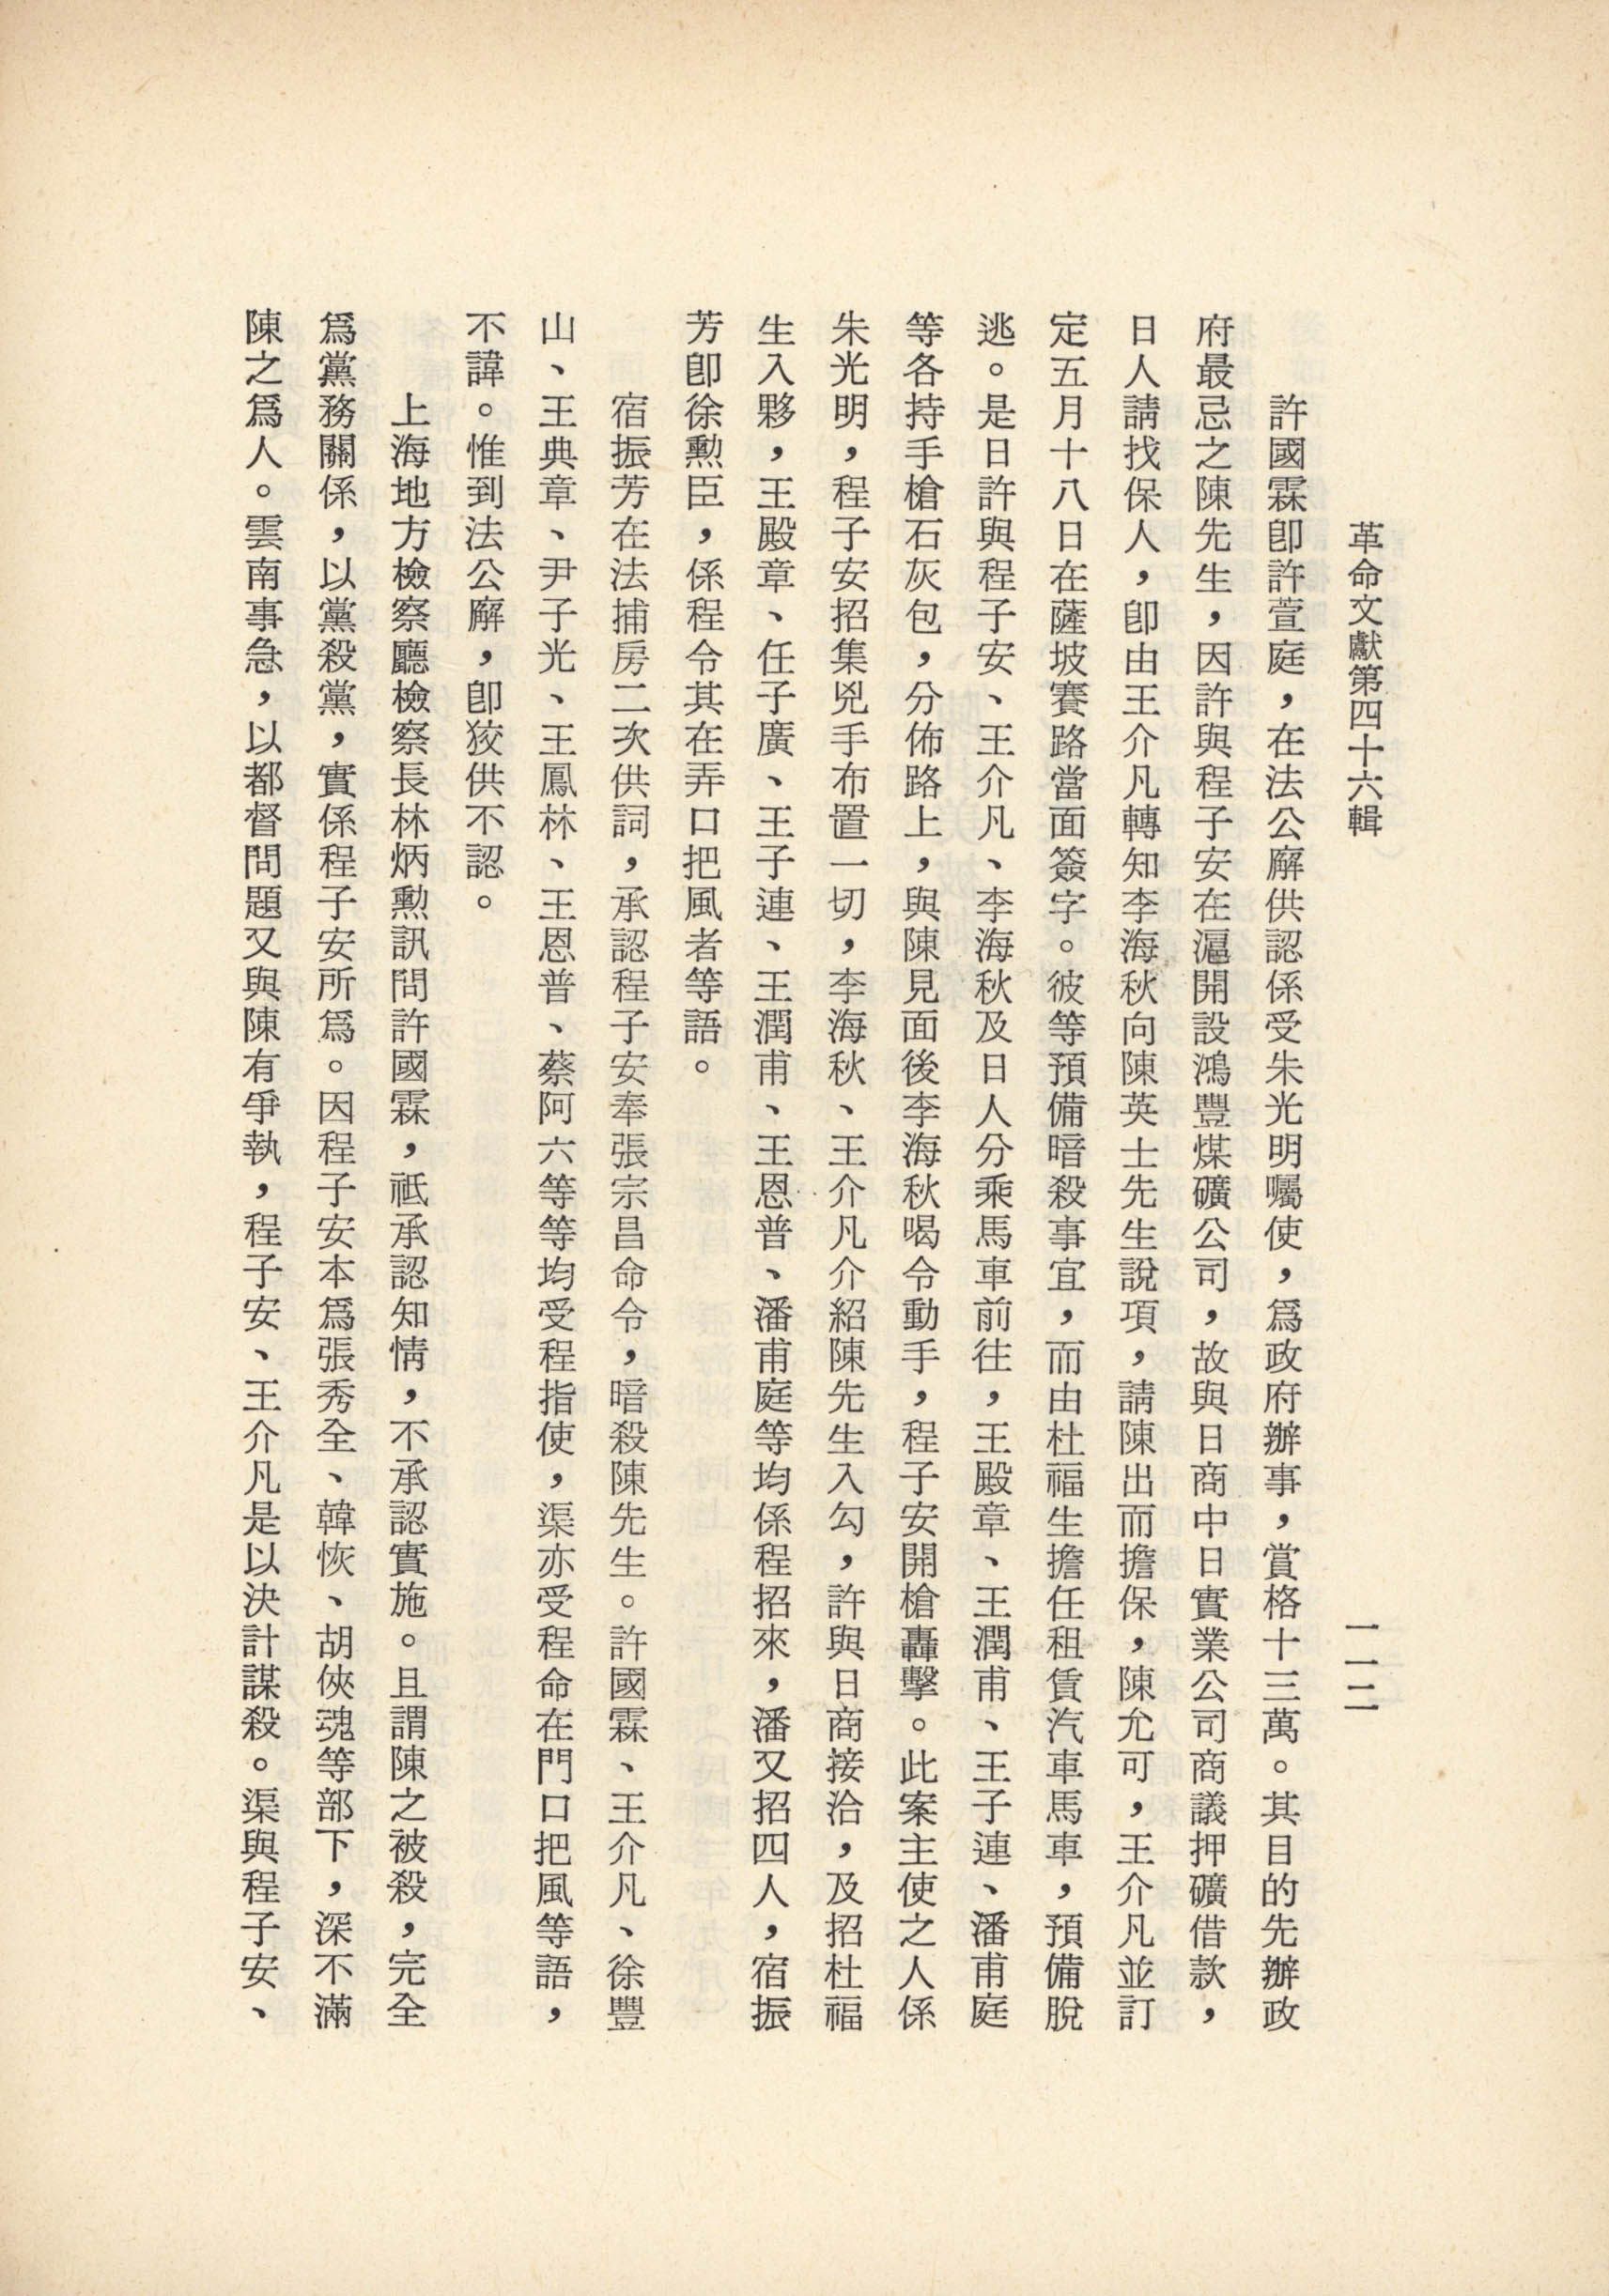 革命文獻第四十六輯
一一二
許國霖卽許萱庭，在法公廨供認係受朱光明囑使，爲政府辦事，賞格十三萬。其目的先辦政
府最忌之陳先生，因許與程子安在滬開設鴻豐煤礦公司，故與日商中日實業公司商議押礦借款，
日人請找保人，卽由王介凡轉知李海秋向陳英士先生說項，請陳出而擔保，陳允可，王介凡並訂
定五月十八日在薩坡賽路當面簽字。彼等預備暗殺事宜，而由杜福生擔任租賃汽車馬車，預備脫
逃。是日許與程子安、王介凡、李海秋及日人分乘馬車前往，王殿章、王潤甫、王子連、潘甫庭
等各持手槍石灰包，分佈路上，與陳見面後李海秋喝令動手，程子安開槍轟擊。此案主使之人係
朱光明，程子安招集兇手布置一切，李海秋、王介凡介紹陳先生入勾，許與日商接洽，及招杜福
生入夥，王殿章、任子廣、王子連、王潤甫、王恩普、潘甫庭等均係程招來，潘又招四人，宿振
芳卽徐勳臣，係程令其在弄口把風者等語。
宿振芳在法捕房二次供詞，承認程子安奉張宗昌命令，暗殺陳先生。許國霖、王介凡、徐豐
山、王典章、尹子光、王鳳林、王恩普、蔡阿六等等均受程指使，渠亦受程命在門口把風等語，
不諱。惟到法公廨，卽狡供不認。
上海地方檢察廳檢察長林炳勳訊問許國霖，祗承認知情，不承認實施。且謂陳之被殺，完全
爲黨務關係，以黨殺黨，實係程子安所爲。因程子安本爲張秀全、韓恢、胡俠魂等部下，深不滿
陳之爲人。雲南事急，以都督問題又與陳有爭執，程子安、王介凡是以決計謀殺。渠與程子安、